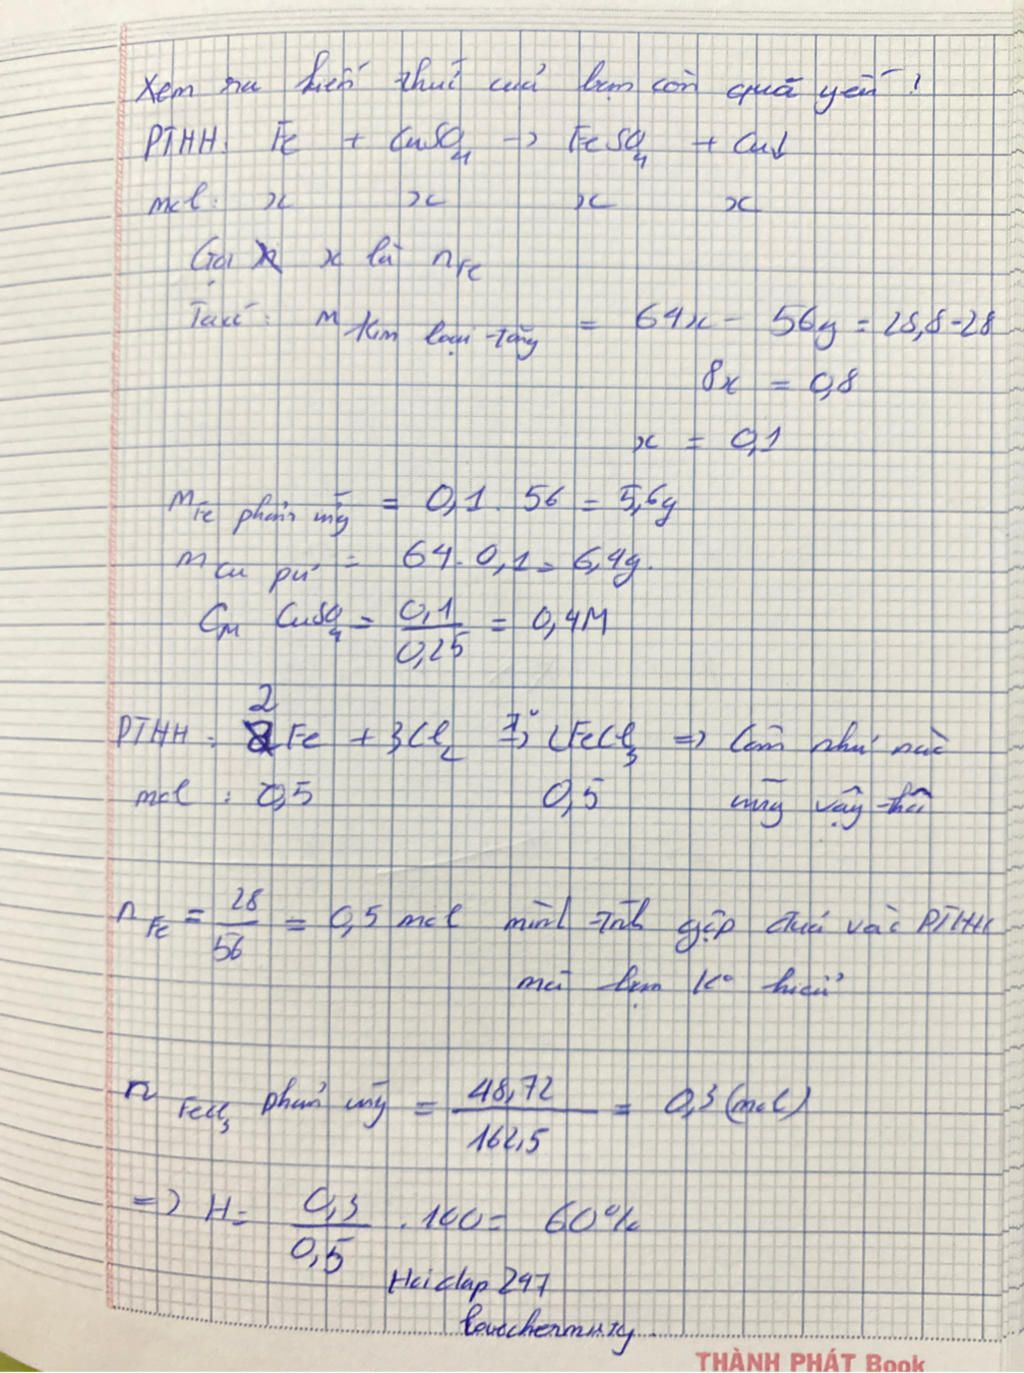 Xem ra kiến thức của bạn còn quá yếu !
PTHH: Fe + CuSO4 → FeSO4 + Cu↓
mol: x x x x
Gọi x là nFe
Ta có: m kim loại tăng = 64x - 56y = 28,8-28
8x = 0,8
x = 0,1
mFe phản ứng = 0,1 . 56 = 5,6g
mCu pứ = 64.0,1 = 6,4g.
CM CuSO4 = 0,1/0,25 = 0,4M
PTHH: 2Fe + 3Cl2 t°→ 2FeCl3 => Cân như nào
mol : 0,5 0,5 cũng vậy thôi
nFe = 28/56 = 0,5 mol mình tính gộp đưa vào PTHH
mà bạn K° hiểu
nFeCl3 phản ứng = 48,72/162,5 = 0,3 (mol)
=> H = 0,3/0,5 . 100 = 60%
Hoidap 247